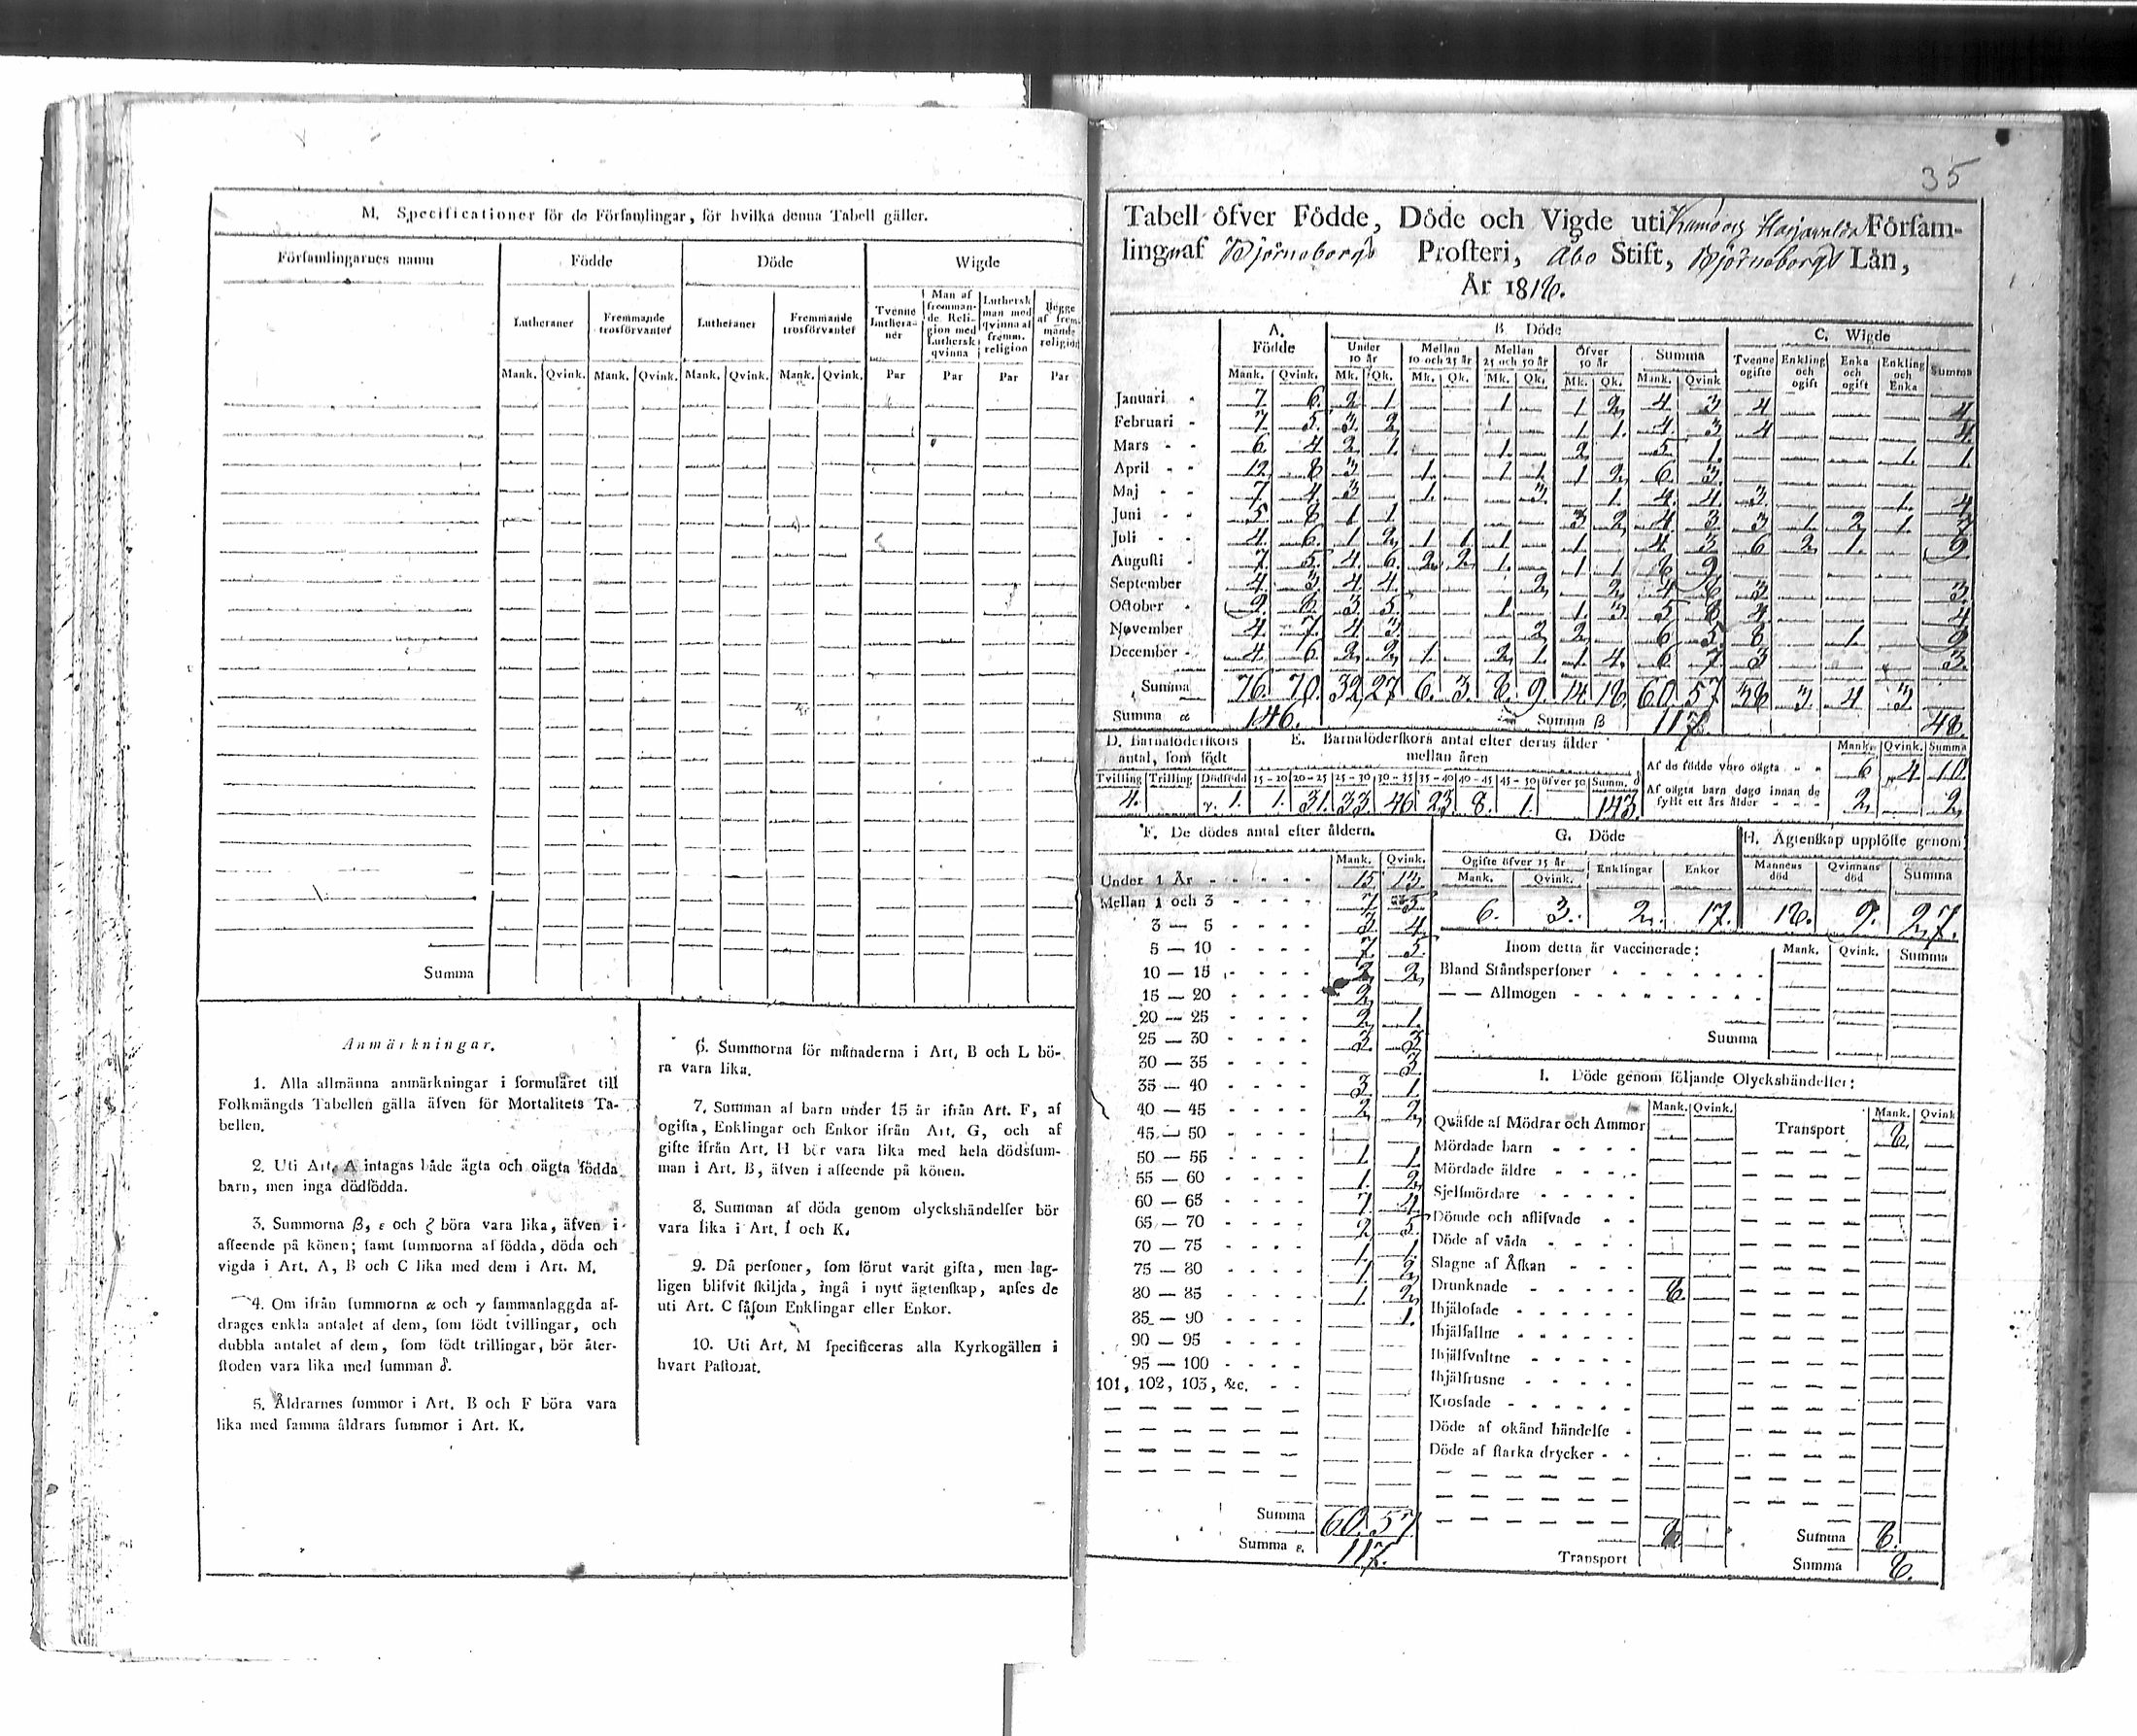 M. Specificationer för de Församlingar, för hvilka denna Tabell gäller.
Församlingarnes namn Födde Döde Wigde
Lutheraner Fremmande trosförvanter Lutheraner Fremmande trosförvanter Tvenne Lutheraner Man af fremmande Religion med Luthersk qvinna Luthersk man med qvinna af fremm. religion Begge af fremmande religion
Mank. Qvink. Mank. Qvink. Mank. Qvink. Mank. Qvink. Par Par Par Par
Summa
Anmärkningar.
1. Alla allmänna anmärkningar i formuläret till
Folkmängds Tabellen gälla äfven för Mortalitets Ta-
bellen.
2. Uti Art. A intagas både ägta och oägta födda
barn, men inga dödfödda.
3. Summorna β, ε och ζ böra vara lika, äfven i
afseende på könen; samt summorna af födda, döda och
vigda i Art. A, B och C lika med dem i Art. M.
4. Om ifrån summorna α och γ sammanlaggda af-
drages enkla antalet af dem, som födt tvillingar, och
dubbla antalet af dem, som födt trillingar, bör åter-
stoden vara lika med summan δ.
5. Åldrarnes summor i Art. B och F böra vara
lika med samma åldrars summor i Art. K.
6. Summorna för månaderna i Art. B och L bö-
ra vara lika.
7. Summan af barn under 15 år ifrån Art. F, af
ogifta, Enklingar och Enkor ifrån Art. G, och af
gifte ifrån Art. H bör vara lika med hela dödssum-
man i Art. B, äfven i afseende på könen.
8. Summan af döda genom olyckshändelser bör
vara lika i Art. I och K.
9. Då personer, som förut varit gifta, men lag-
ligen blifvit skiljda, ingå i nytt ägtenskap, anses de
uti Art. C såsom Enklingar eller Enkor.
10. Uti Art. M specificeras alla Kyrkogällen i
hvart Pastorat.
35
Tabell öfver Födde, Döde och Vigde uti Kumo och Harjavalda Försam-
lingn af Björneborgs Prosteri, Åbo Stift, Björneborgs Län,
År 1818.
A. Födde B. Döde C. Wigde
Under 10 år Mellan 10 och 25 år Mellan 25 och 50 år Öfver 50 år Summa Tvenne ogifte Enkling och ogift Enka och ogift Enkling och Enka Summa
Mank. Qvink. Mk. Qk. Mk. Qk. Mk. Qk. Mk. Qk. Mank. Qvink
Januari 7. 6. 2 1 1 1 2 4 3 4 4
Februari 7. 5. 3 2 1 1. 4 3 4 4.
Mars 6 4 2 1. 1. 2 5 1. 1. 1.
April 12. 8 3 1. 1 1. 1 2 6 3
Maj 7 4. 3 1. 3 1. 4 4 3 1. 4
Juni 5 8 1 1 3 2 4 3 3 1. 2 1 7
Juli 4. 6. 1 2 1 1. 1 1 4 3 6 2 1. 9
Augusti 7 5. 4 6 2 2 1. 1 1 8 9
September 4 3 4 4 2 2 4 8 3 3.
October 9 8 3 5 1 1 3 5 8 4 4
November 4 7. 4 3 2 2 6 5 8 1. 9
December 4. 6 2 2 1. 2 1. 1 4. 6 7 3 3.
Summa 76. 70. 32 27 6. 3. 8. 9. 14. 18. 60. 57 38 3 4 3
Summa α 146. Summa β 117. 48.
D. Barnaföderskors antal, som födt
E. Barnaföderskors antal efter deras ålder mellan åren
Tvilling Trilling Dödfödd 15-20 20-25 25-30 30-35 35-40 40-45 45-50 öfver 50 Summ. δ
4. γ. 1. 1. 31. 33. 46 23 8. 1. 143.
Mank. Qvink. Summa
Af de födde voro oägta 6 4. 10.
Af oägta barn dogo innan de fyllt ett års ålder 2 2
F. De dödes antal efter åldern.
Mank. Qvink.
Under 1 År 15 13.
Mellan 1 och 3 7 5.
3 — 5 3 4
5 — 10 7 5
10 — 15 2 2
15 — 20 2
20 — 25 2 1.
25 — 30 3 3
30 — 35 3
35 — 40 3 1
40 — 45 2 2
45 — 50
50 — 55 1 1
55 — 60 1. 2
60 — 65 7 4
65 — 70 2 5
70 — 75 1 1.
75 — 80 1 2
80 — 85 1. 2
85 — 90 1.
90 — 95
95 — 100
101, 102, 103, &c.
Summa 60. 57
Summa ε. 117.
G. Döde
Ogifte öfver 15 år Enklingar Enkor
Mank. Qvink.
6. 3. 2. 17.
H. Ägtenskap upplöste genom
Mannens död Qvinnans död Summa
18. 9. 27.
Inom detta år vaccinerade: Mank. Qvink. Summa
Bland Ståndspersoner
— — Allmogen
Summa
I. Döde genom följande Olyckshändelser:
Mank. Qvink. Mank. Qvink
Qväfde af Mödrar och Ammor Transport 8.
Mördade barn
Mördade äldre
Sjelfmördare
Dömde och aflifvade
Döde af våda
Slagne af Åskan
Drunknade 8.
Ihjälosade
Ihjälfallne
Ihjälsvultne
Ihjälfrusne
Krossade
Döde af okänd händelse
Döde af starka drycker
Transport 8. Summa 8.
Summa 8.